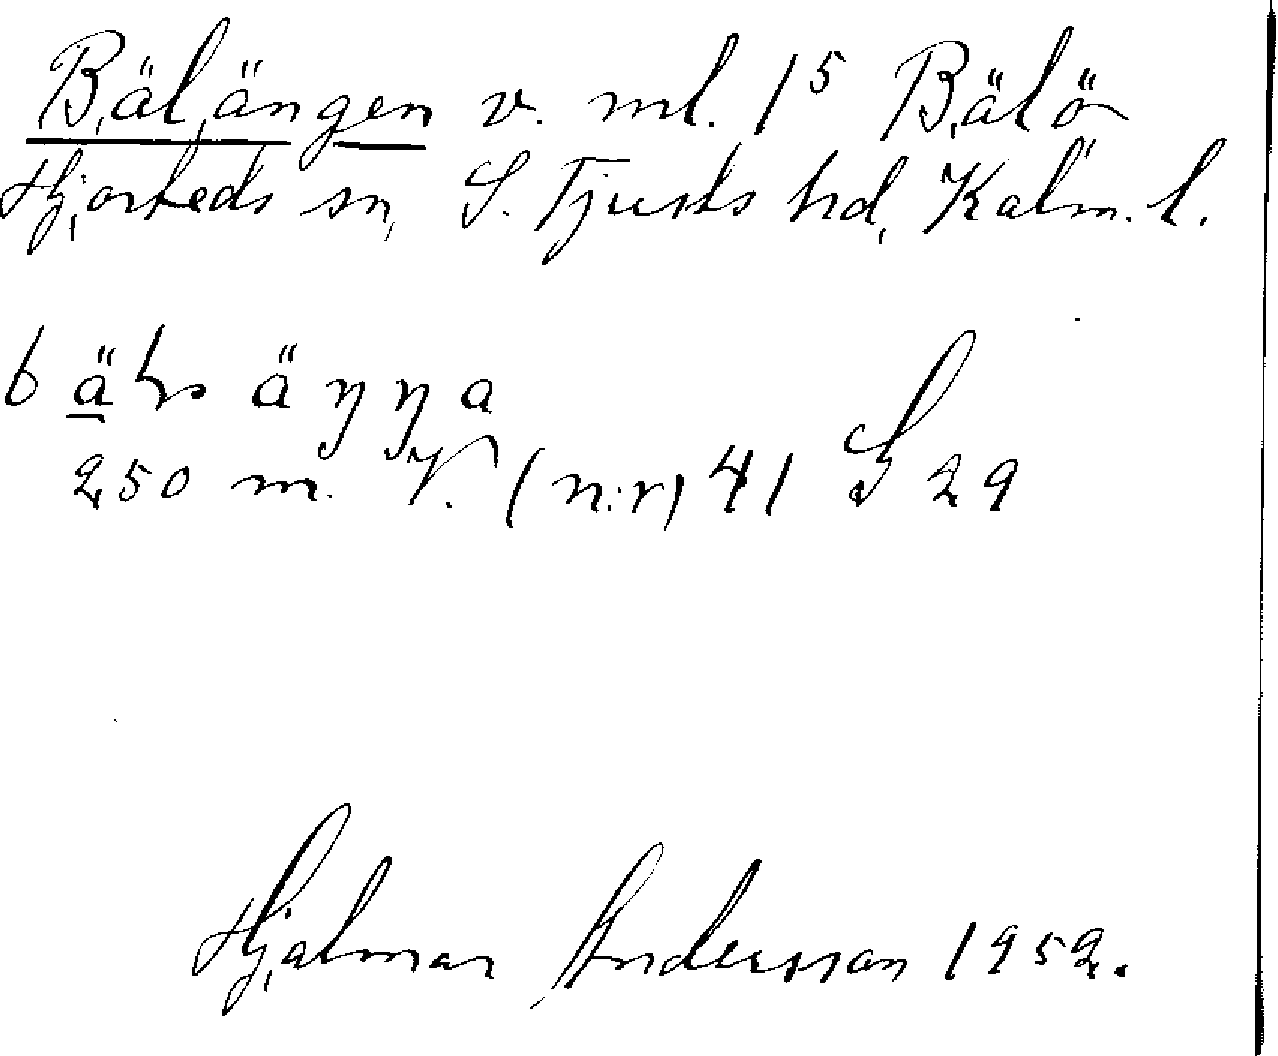 Bälängen v. ml. 1⁵ Bälö
Hjorteds sn, S. Tjusts hd, Kalm. l.
bäḷs äŋŋa
250 m. V. (n:r) 41 S 29
Hjalmar Andersson 1952.